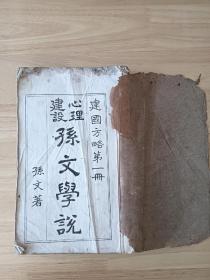 建國方略第一冊
心理
建設
孫文學說
孫文著